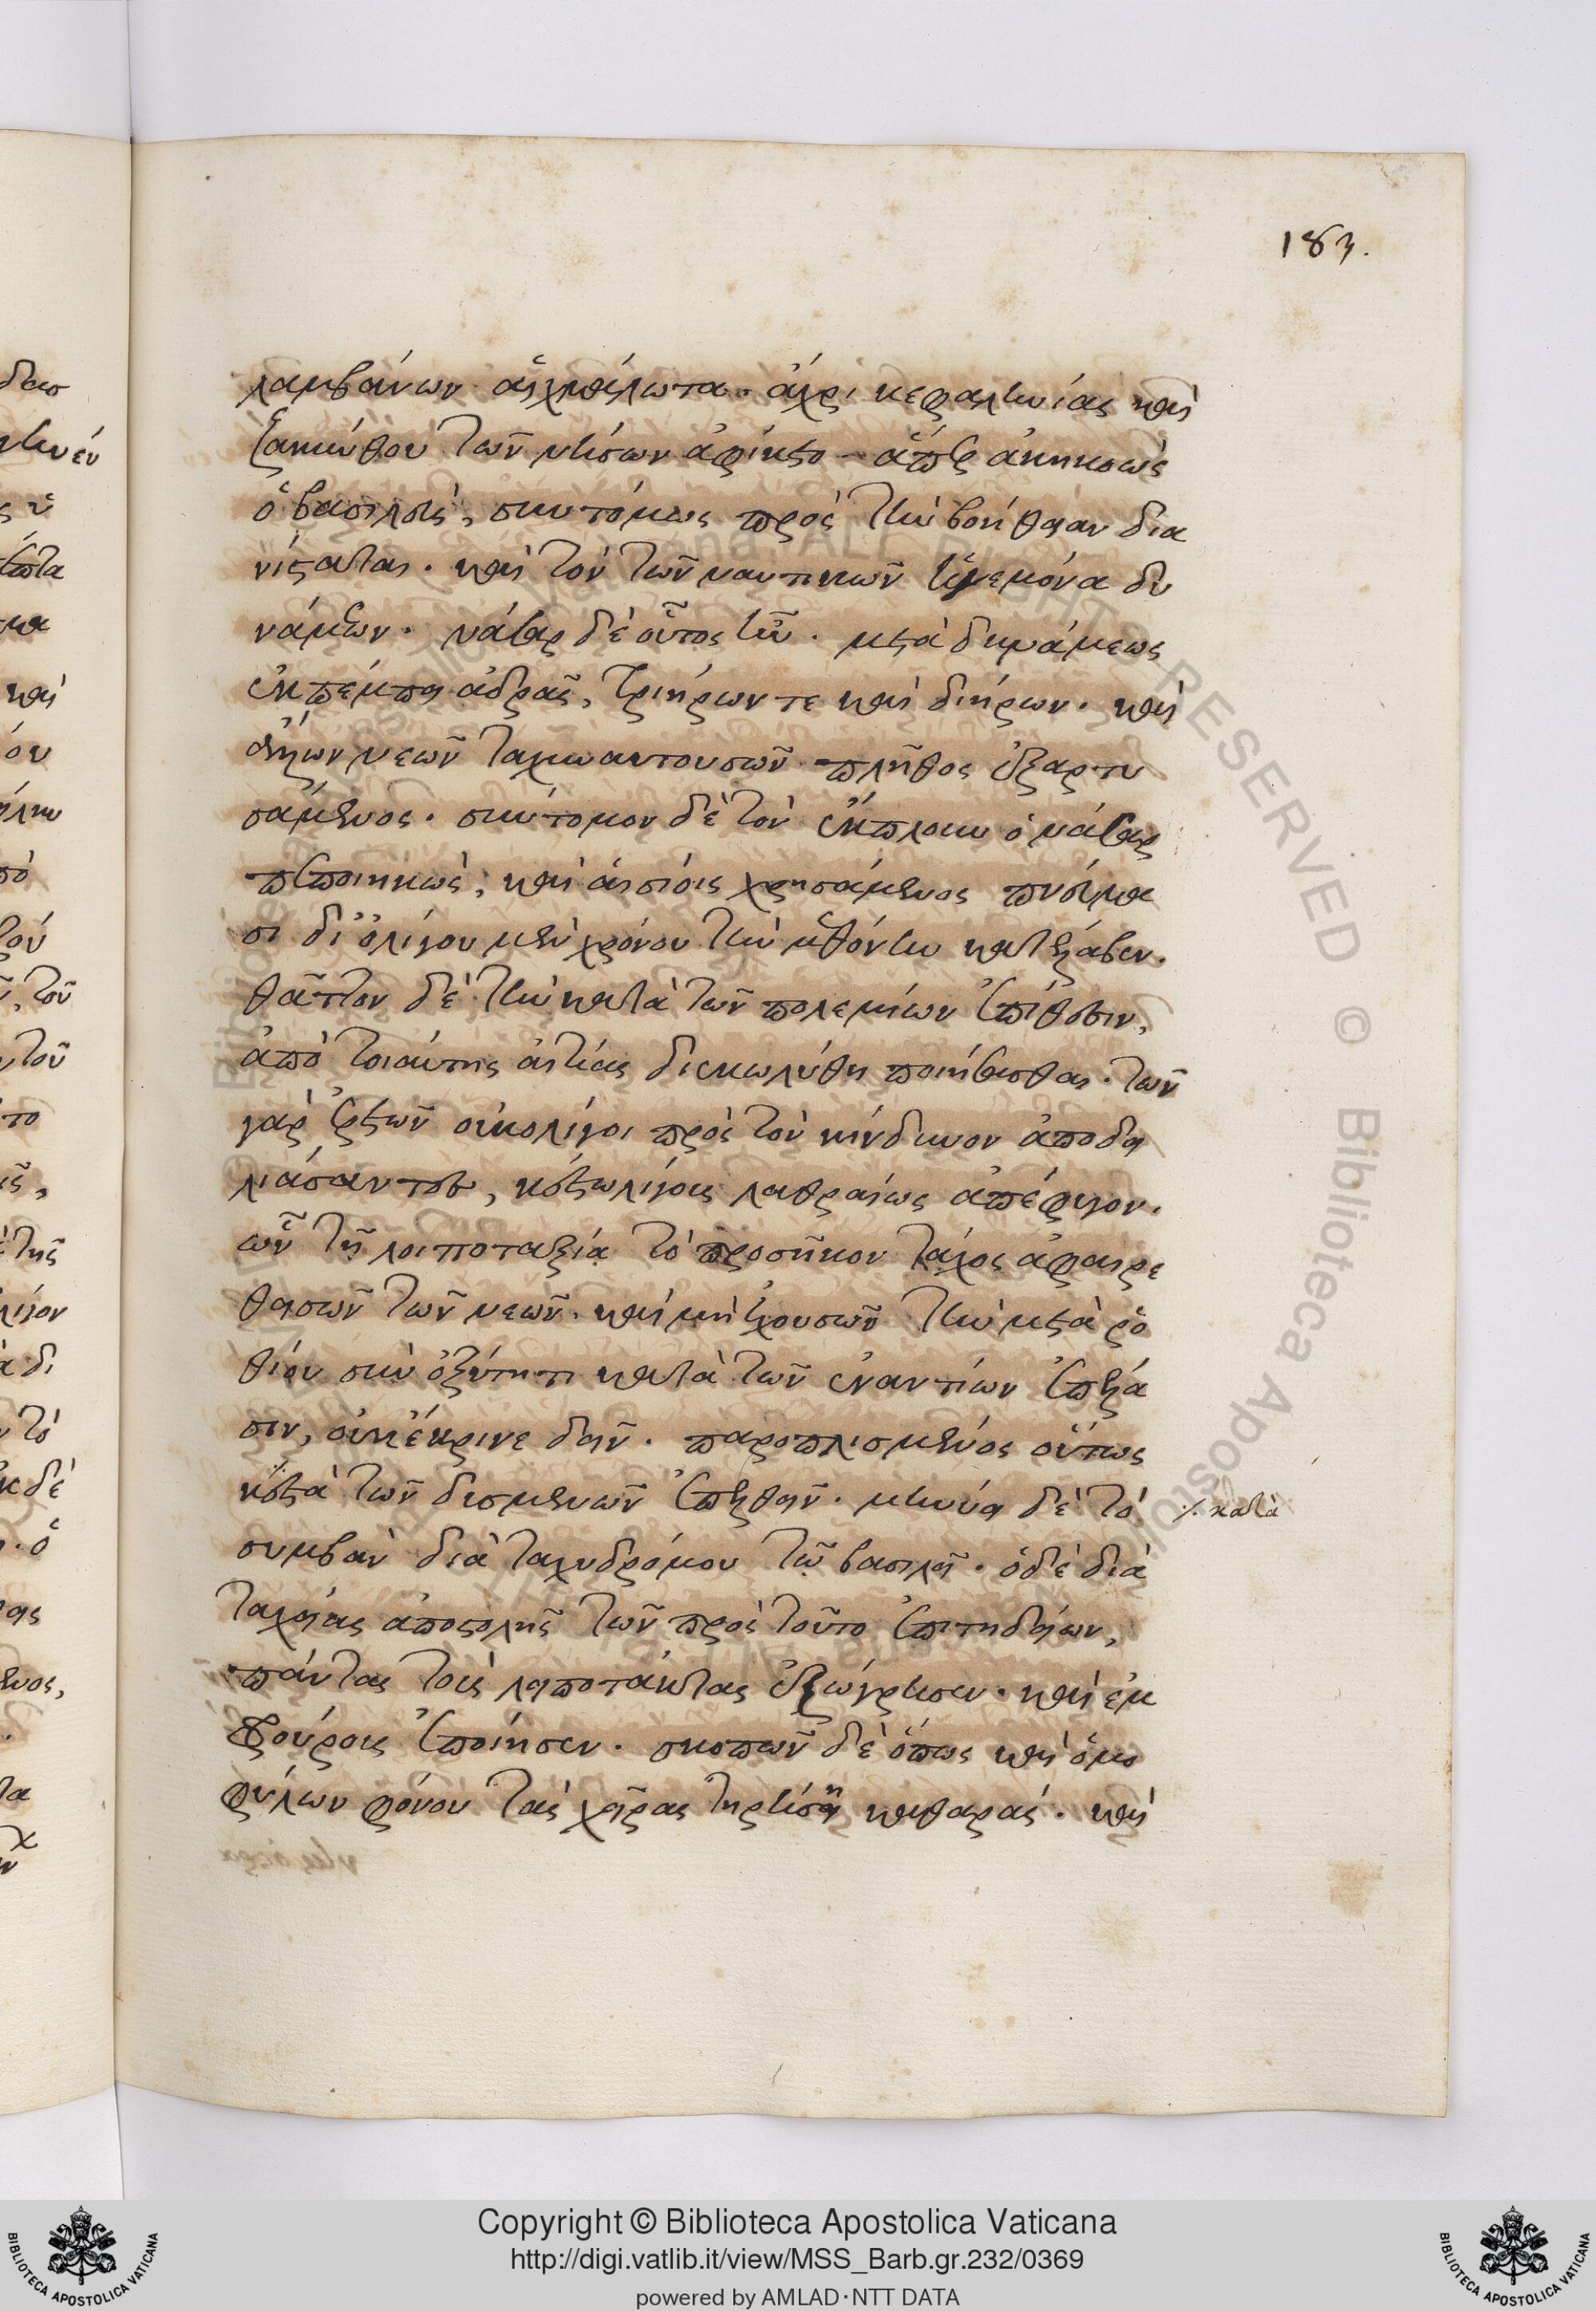 183.
λαμβάνων αἰχμάλωτα. ἄχρι κεφαληνίας καὶ
ζακύνθου τῶν νήσων ἀφίκετο – ἅπερ ἀκηκοὼς
ὁ βασιλεὺς, συντόμως πρὸς τὴν βοήθειαν δια
νίσταται. καὶ τὸν τῶν ναυτικῶν ἡγεμόνα δυ
νάμεων. νάσαρ δὲ οὗτος ἦν. μετὰ δυνάμεως
ἐκπέμπει ἁδρᾶς, τριήρων τε καὶ διήρων. καὶ
ἄλλων νεῶν ταχυναυτουσῶν πλῆθος ἐξαρτυ
σάμενος. σύντομον δὲ τὸν ἔκπλουν ὁ νάσαρ
πεποιηκὼς, καὶ αἰσίοις χρησάμενος πνεύμα
σι δι' ὀλίγου μὲν χρόνου τὴν μεθόνην κατέλαβεν.
θᾶττον δὲ τὴν κατὰ τῶν πολεμίων ἐπίθεσιν,
ἀπὸ τοιαύτης αἰτίας διεκωλύθη ποιήσασθαι. τῶν
γὰρ ἐρετῶν οὐκ ὀλίγοι πρὸς τὸν κίνδυνον ἀποδει
λιάσαντες, κατ' ὀλίγους λαθραίως ἀπέφυγον.
ὧν τῇ λοιποταξίᾳ τὸ προσῆκον τάχος ἀφαιρε
θεισῶν τῶν νεῶν. καὶ μὴ ἐχουσῶν τὴν μετὰ ῥο
θίου σὺν ὀξύτητι κατὰ τῶν ἐναντίων ἐπέλα
σιν, οὐκ ἔκρινε δεῖν. παροπλισμένος οὕτως
μετὰ τῶν δυσμενῶν ἐπελθεῖν. μηνύει δὲ τὸ
⁒ κατὰ
συμβὰν διὰ ταχυδρόμου τῷ βασιλεῖ. ὁ δὲ διὰ
ταχείας ἀποστολῆς τῶν πρὸς τοῦτο ἐπιτηδείων,
πάντας τοὺς λειποτάκτας ἐζώγρησεν. καὶ ἐμ
φρούρους ἐποίησεν. σκοπῶν δὲ ὅπως καὶ ὁμο
φύλων φόνου τὰς χεῖρας τηρήσῃ καθαράς. καὶ
Copyright © Biblioteca Apostolica Vaticana
http://digi.vatlib.it/view/MSS_Barb.gr.232/0369
powered by AMLAD·NTT DATA